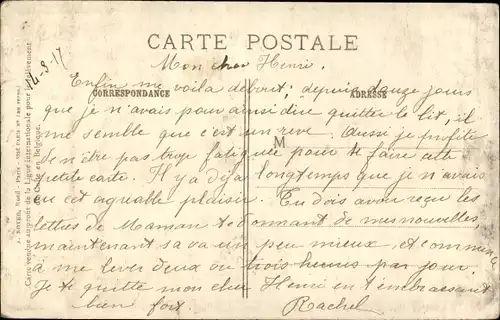 CARTE POSTALE
14-9-17
Mon cher Henri.
CORRESPONDANCE
ADRESSE
M
Enfin me voila debout; depuis douze jours
que je n'avais pour ainsi dire quitter le lit, il
me semble que c'est un reve. Aussi je profite
de n'être pas trop fatiguée pour te faire cette
petite carte. Il y a déja longtemps que je n'avais
eu cet agréable plaisir. Tu dois avoir reçu les
lettres de Maman te donnant de mes nouvelles,
maintenant sa va un peu mieux, et commence
a me lever deux ou trois heures par jour.
Je te quitte mon cher Henri en t'embrassant
bien fort. Rachel